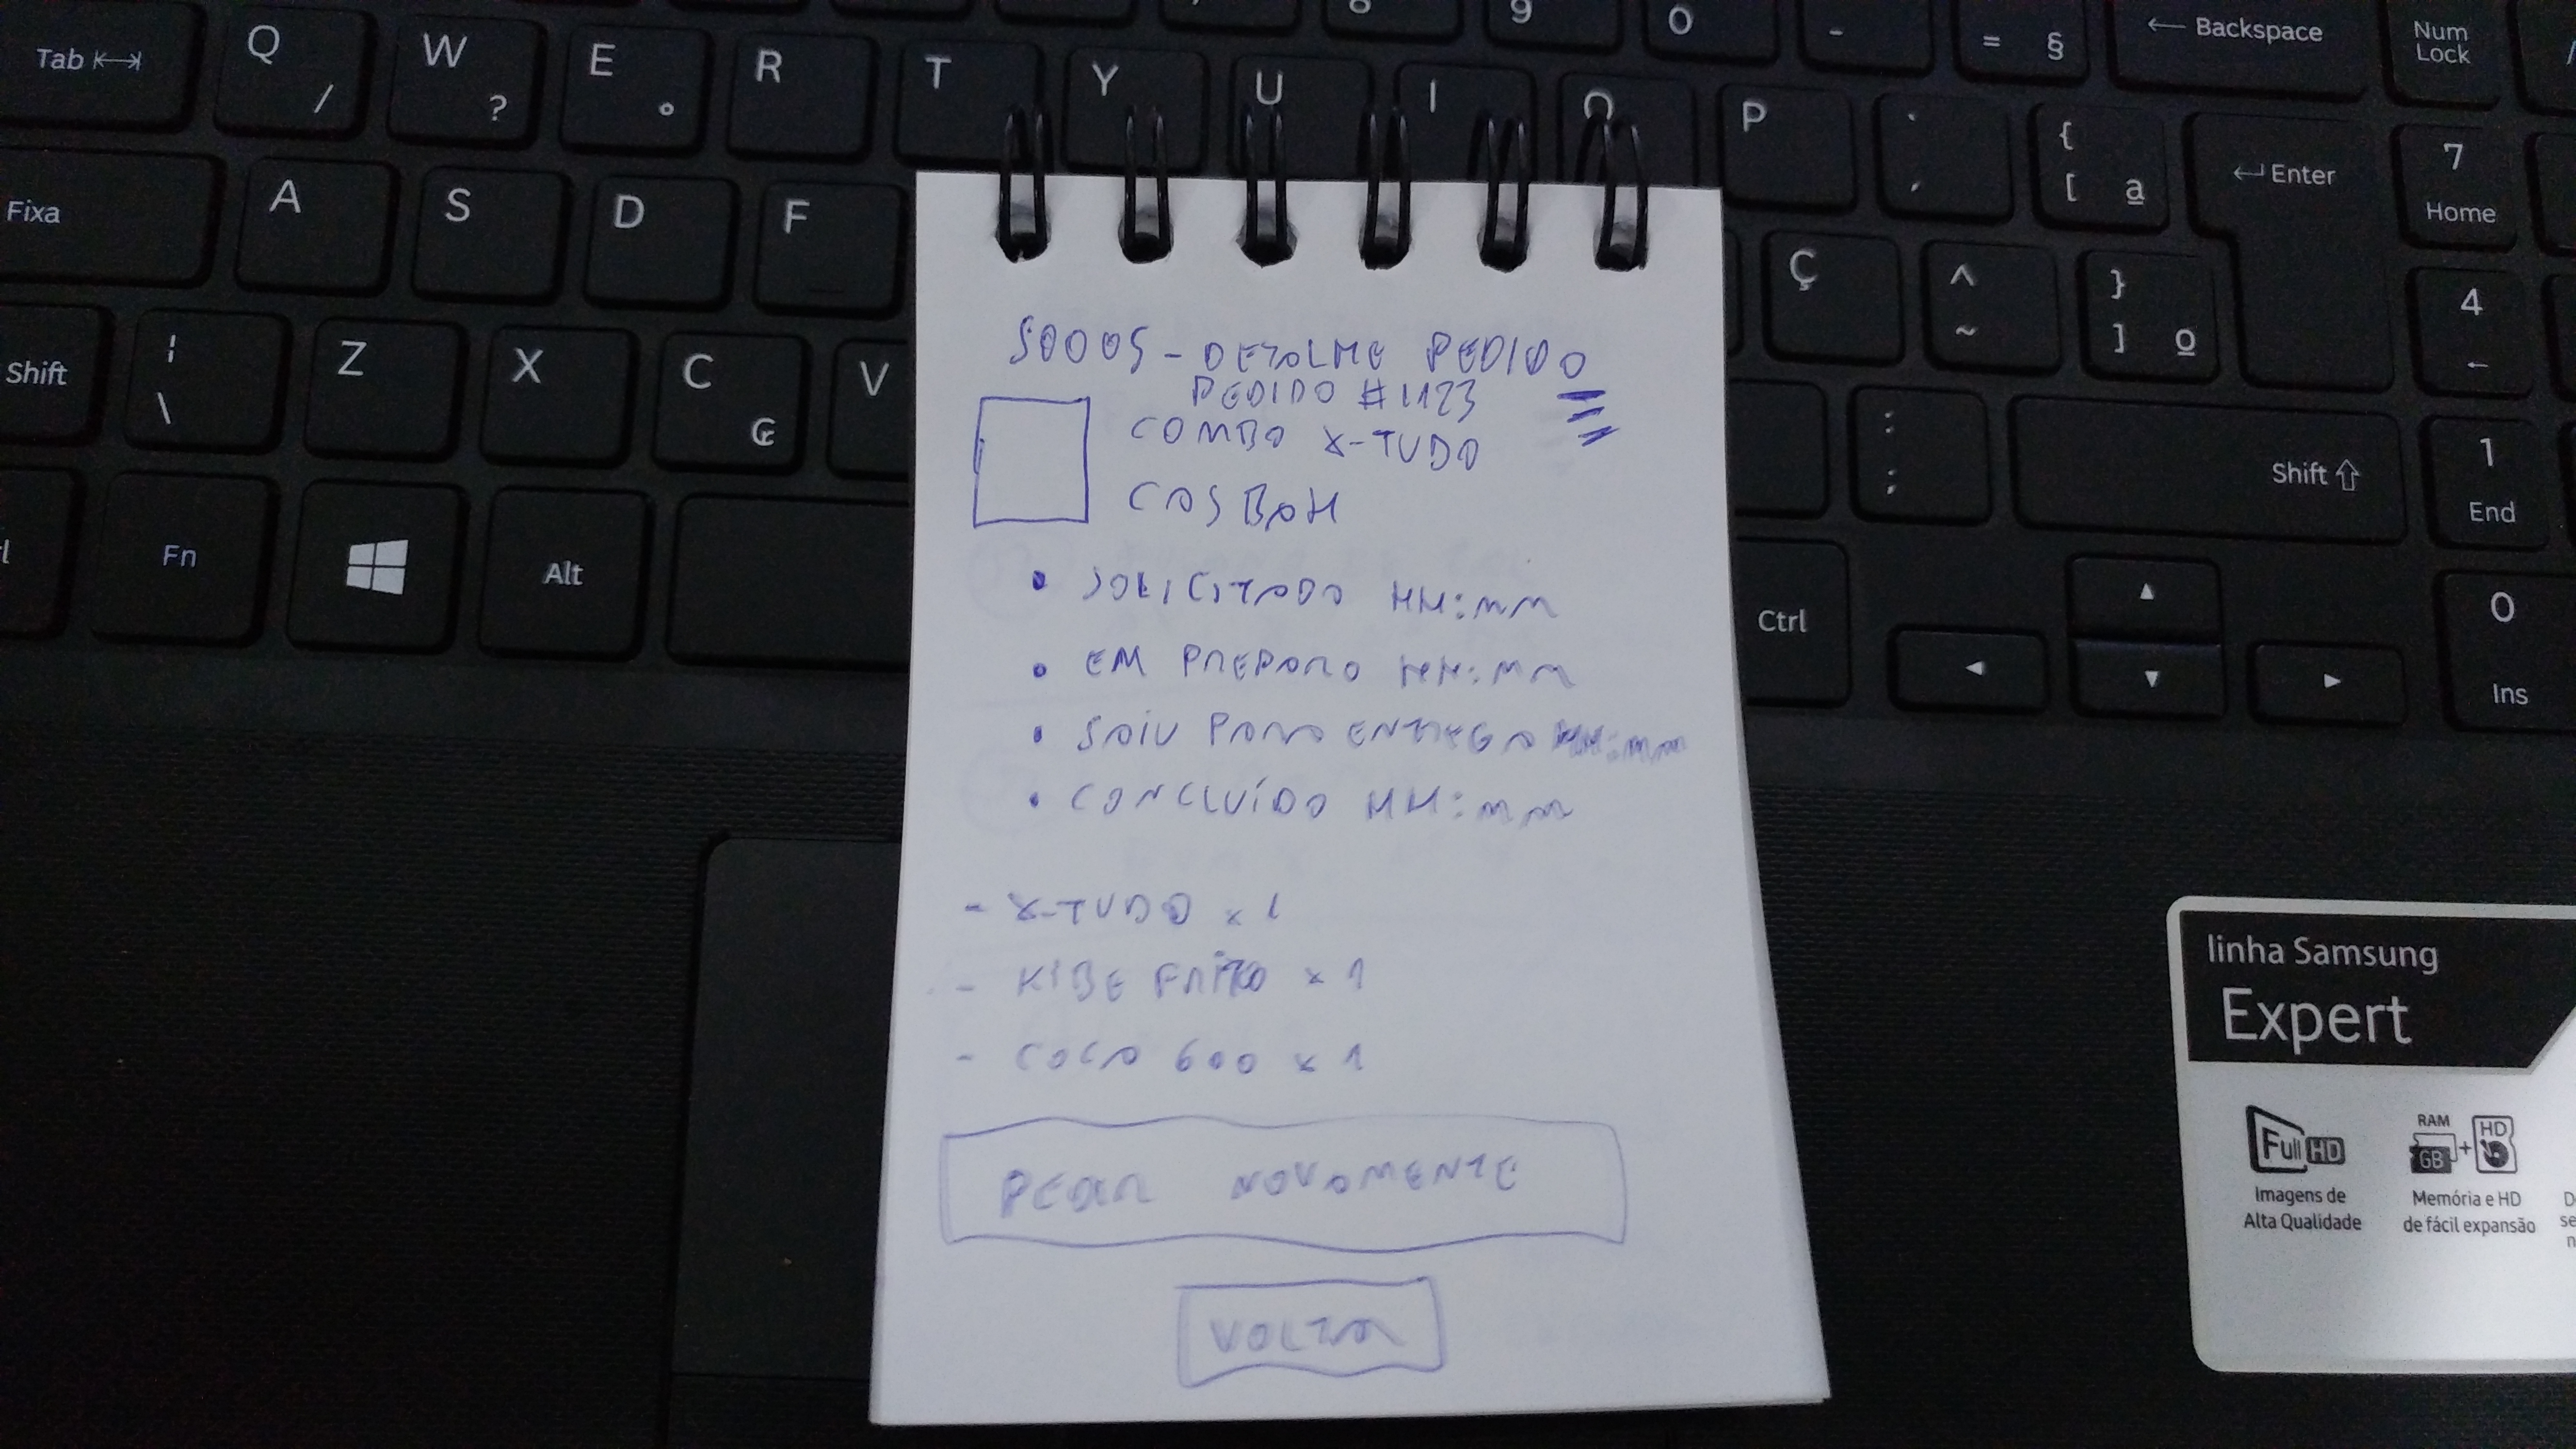 8 9 0 - = § ← Backspace Num Lock
Tab Q / W ? E ° R T Y U I O P ` ´ { [ ª ← Enter 7 Home
Fixa A S D F Ç ^ ~ } ] º 4 ←
Shift ¦ \ Z X C ₢ V : ; Shift 1 End
Fn Alt Ctrl 0 Ins
S0005 - DETALHE PEDIDO
PEDIDO #1123
COMBO X-TUDO
CASBAH
• SOLICITADO HH:MM
• EM PREPARO HH:MM
• SAIU PARA ENTREGA HH:MM
• CONCLUÍDO HH:MM
- X-TUDO x 1
- KIBE FRITO x 1
- COCA 600 x 1
PEDIR NOVAMENTE
VOLTAR
linha Samsung
Expert
Full HD
RAM GB + HD
Imagens de
Alta Qualidade
Memória e HD
de fácil expansão